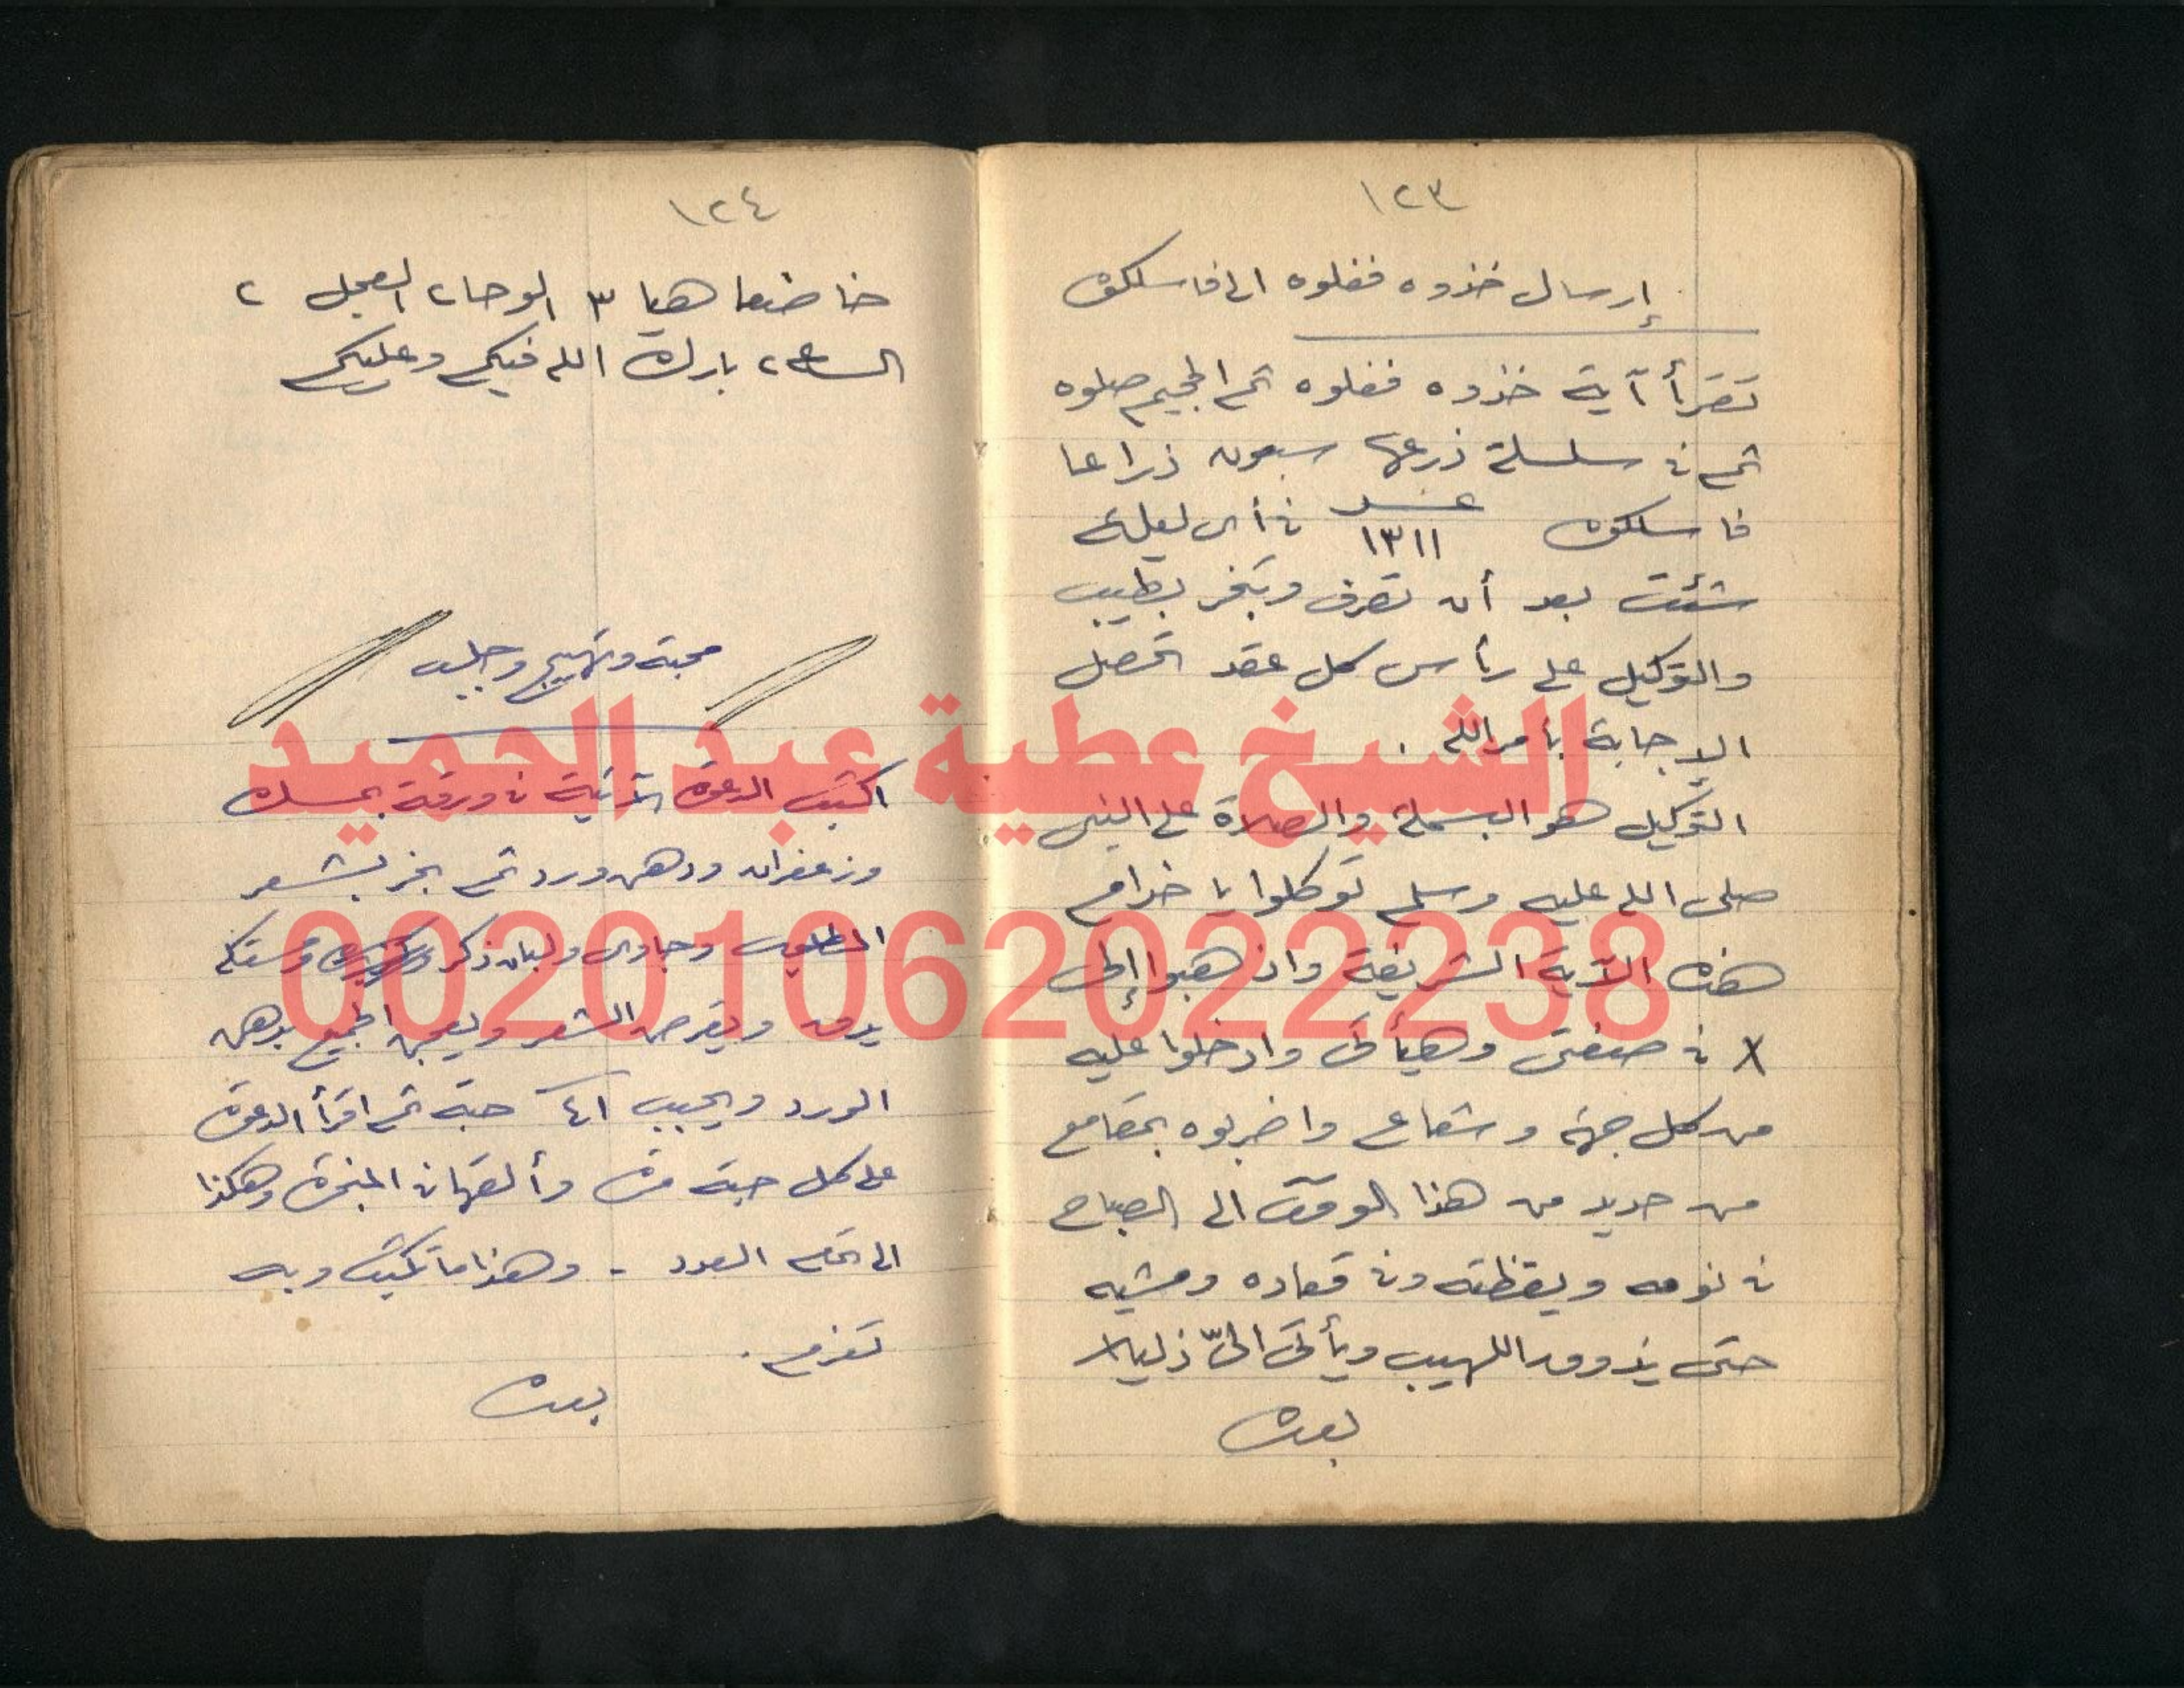 ١٢٣
إرسال خذوه فغلوه الى فاسلكوه
تقرأ آية خذوه فغلوه ثم الجحيم صلوه
ثم فى سلسلة ذرعها سبعون ذراعا
فاسلكوه عدد ١٣١١ فى أى ليلة
شئت بعد أن تصرف وتبخر بطيب
والتوكيل على رأس كل عقد تحصل
الإجابة بأمر الله .
التوكيل هو البسملة والصلاة على النبى
صلى الله عليه وسلم توكلوا يا خدام
هذه الآية الشريفة واذهبوا إلى
x فى صفتى وهيأتى وادخلوا عليه
من كل جهة وشعاع واضربوه بمقامع
من حديد من هذا الوقت الى الصباح
فى نومه ويقظته وفى قعاده ومشيه
حتى يذوق اللهيب ويأتى الىّ ذليلا
بعده
١٢٤
خاضعا هيا ٣ الوحا ٢ العجل ٢
الساعة ٢ بارك الله فيكم وعليكم
محبة وتهييج وجلب
اكتب الدعوة الآتية فى ورقة بمسك
وزعفران ودهن ورد ثم بخر بشعر
المطلوب وجاوى ولبان ذكر ومستكه
يدق ويقرض الشعر ويعجن الجميع بدهن
الورد ويحبب ٤١ حبة ثم اقرأ الدعوة
على كل حبة مرة وألقها فى المبخرة وهكذا
الى تمام العدد - وهذا ما تكتب وبه
تعزم .
بعده
الشيخ عطية عبد الحميد
00201062022238